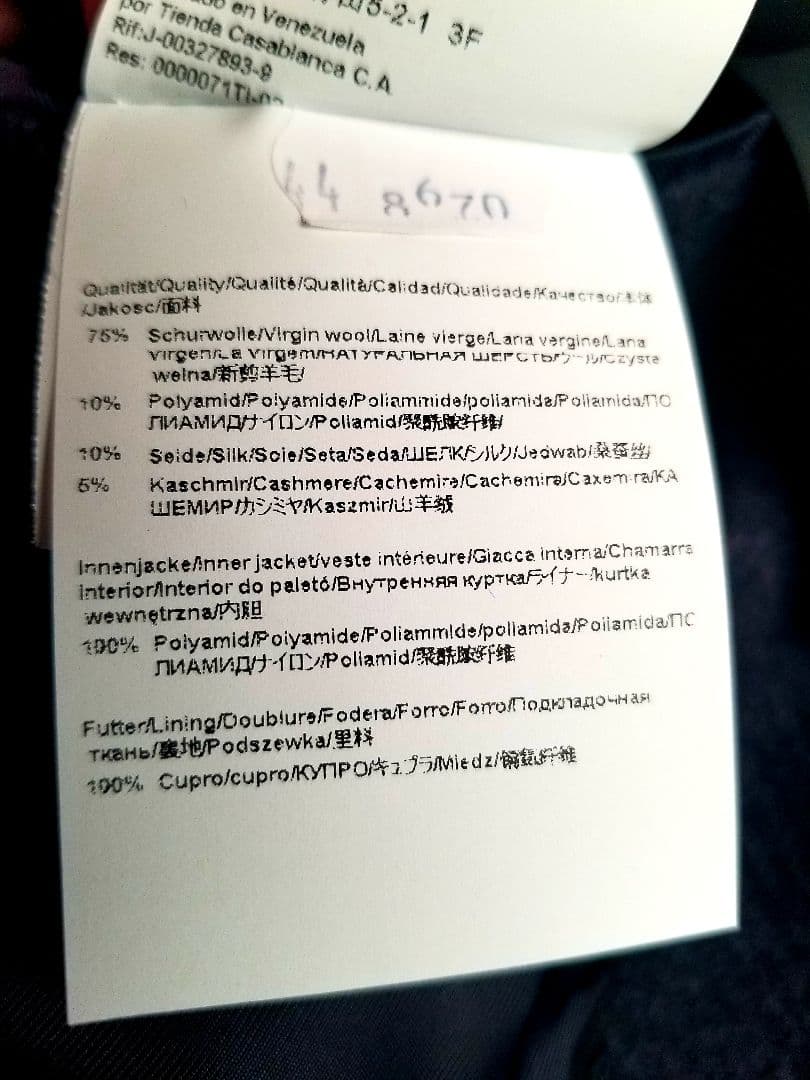 5-2-1 3F
en Venezuela
por Tienda Casablanca C.A
Rif:J-00327893-9
Res: 0000071TI-02
44 8670
Qualität/Quality/Qualité/Qualità/Calidad/Qualidade/Качество/本体
/Jakosc/面料
75% Schurwolle/Virgin wool/Laine vierge/Lana vergine/Lana
virgen/La Virgem/НАТУРАЛЬНАЯ ШЕРСТЬ/ウール/Czysta
welna/新剪羊毛/
10% Polyamid/Polyamide/Poliammide/poliamida/Poliamida/ПО
ЛИАМИД/ナイロン/Poliamid/聚酰胺纤维/
10% Seide/Silk/Soie/Seta/Seda/ШЕЛК/シルク/Jedwab/桑蚕丝/
5% Kaschmir/Cashmere/Cachemire/Cachemira/Caxemira/КА
ШЕМИР/カシミヤ/Kaszmir/山羊绒
Innenjacke/Inner jacket/veste intérieure/Giacca interna/Chamarra
interior/Interior do paletó/Внутренняя куртка/ライナー/kurtka
wewnętrzna/内胆
100% Polyamid/Polyamide/Poliammide/poliamida/Poliamida/ПО
ЛИАМИД/ナイロン/Poliamid/聚酰胺纤维
Futter/Lining/Doublure/Fodera/Forro/Forro/Подкладочная
ткань/裏地/Podszewka/里料
100% Cupro/cupro/КУПРО/キュプラ/Miedz/铜氨纤维